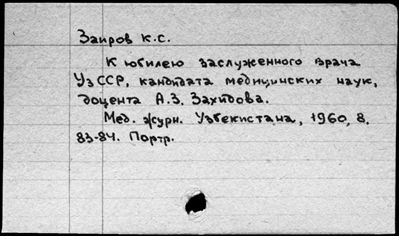 Заиров К.С.
К юбилею заслуженного врача
УзССР, кандидата медицинских наук,
доцента А.З. Захидова.
Мед. журн. Узбекистана, 1960, 8,
83-84. Портр.